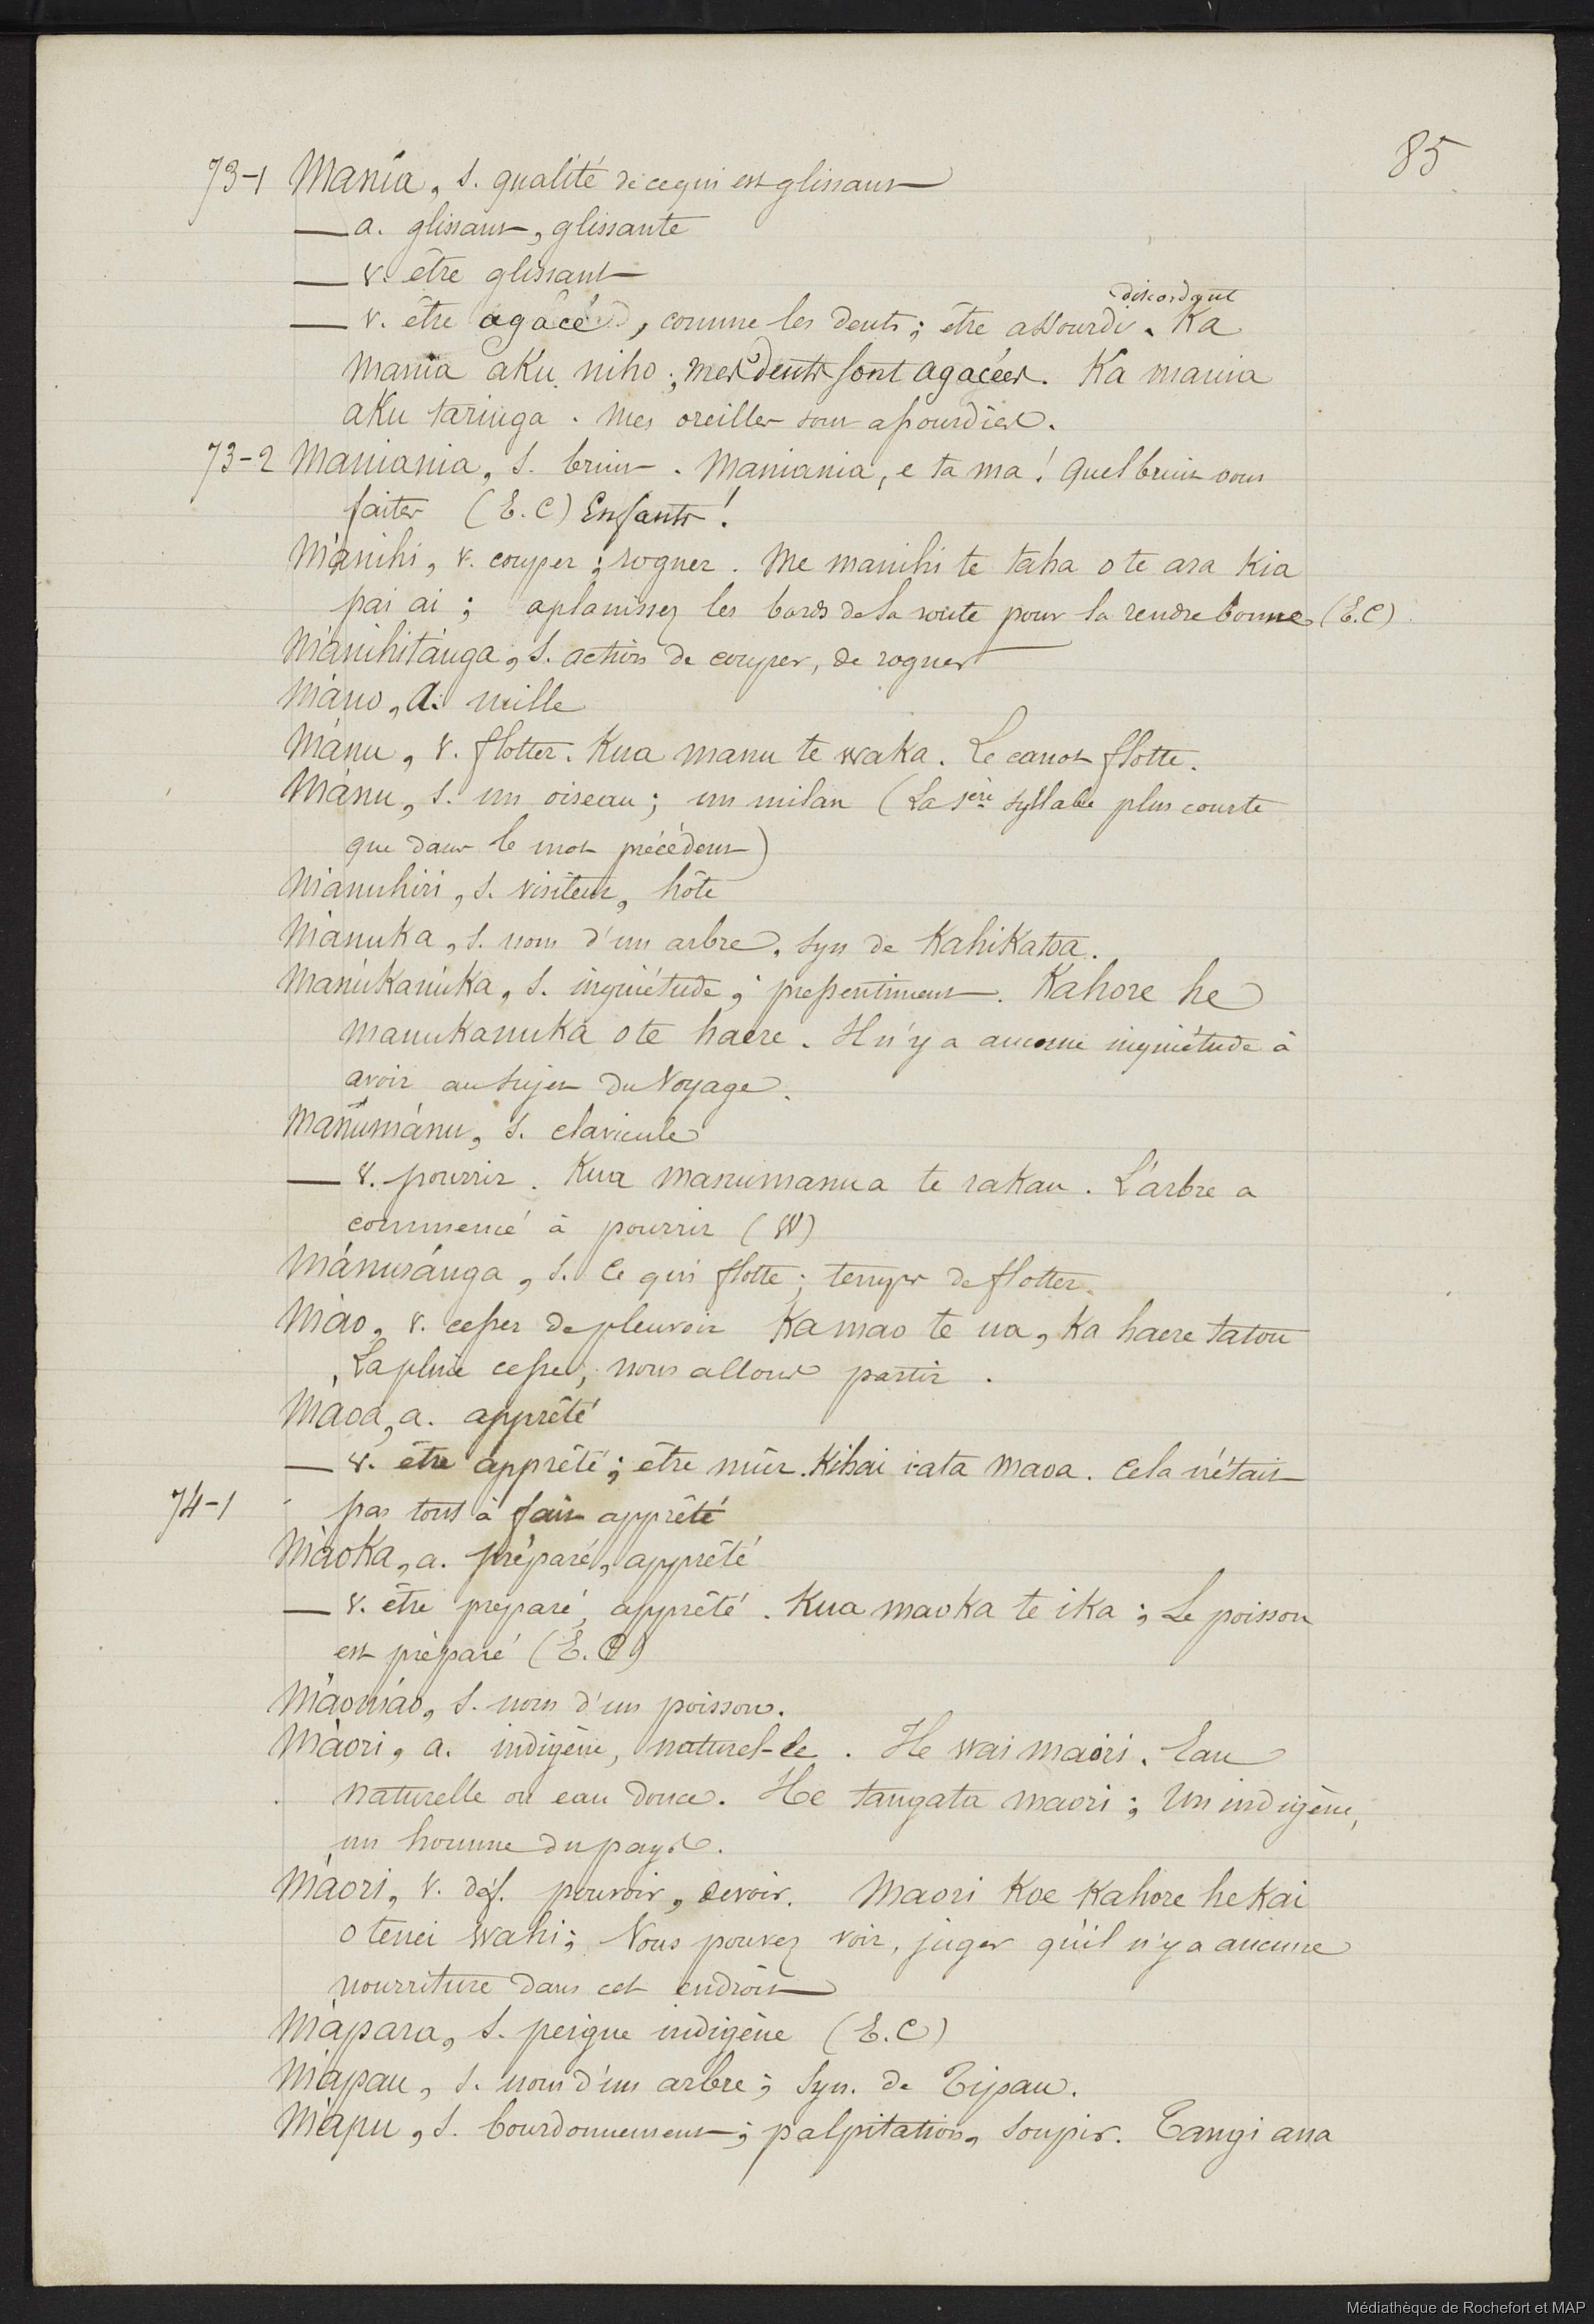 85
73-1 Manía, s. qualité de ce qui est glissant
— a. glissant, glissante
— v. être glissant
discordant
— v. être agacé, comme les dents; être assourdi. Ka
mania aku niho; mes dents sont agacées. Ka mania
aku taringa. Mes oreilles sont assourdies.
73-2 Maniania, s. bruit. Maniania, e ta ma! Quel bruit vous
faites (E.C) Enfants!
Mánihi, v. couper; rogner. Me manihi te taha o te ara kia
pai ai; aplanissez les bords de la route pour la rendre bonne (E.C)
Mánihitánga, s. action de couper, de rogner
Máno, a. mille
Mánu, v. flotter. Kua manu te waka. Le canot flotte.
Mánu, s. un oiseau; un milan (La 1ère syllabe plus courte
que dans le mot précédent)
Mánuhiri, s. visiteur, hôte
Mánuka, s. nom d'un arbre, syn de Kahikatoa.
Manúkanúka, s. inquiétude; pressentiment. Kahore he
manukanuka o te haere. Il n'y a aucune inquiétude à
avoir au sujet du Voyage.
Manumánu, s. clavicule
— v. pourrir. Kua manumanua te rakau. L'arbre a
commencé à pourrir (W)
Mánusánga, s. Ce qui flotte; temps de flotter.
Máo, v. cesser de pleuvoir Ka mao te ua, ka haere tatou
La pluie cesse; nous allons partir.
Máoa, a. apprêté
— v. être apprêté; être mûr. Kihai i ata maoa. Cela n'était
74-1 pas tout à fait apprêté
Máoka, a. préparé, apprêté
— v. être préparé, apprêté. Kua maoka te ika; Le poisson
est préparé (E.C)
Máomáo, s. nom d'un poisson.
Máori, a. indigène, naturel-le. He wai maori. Eau
naturelle ou eau douce. He tangata maori; Un indigène,
un homme du pays.
Máori, v. déf. pouvoir, devoir. Maori koe kahore he kai
o tenei wahi; Vous pouvez voir, juger qu'il n'y a aucune
nourriture dans cet endroit
Mápara, s. peigne indigène (E.C)
Mápau, s. nom d'un arbre; Syn. de Tipau.
Mápu, s. bourdonnement; palpitation, soupir. Tangi ana
Médiathèque de Rochefort et MAP